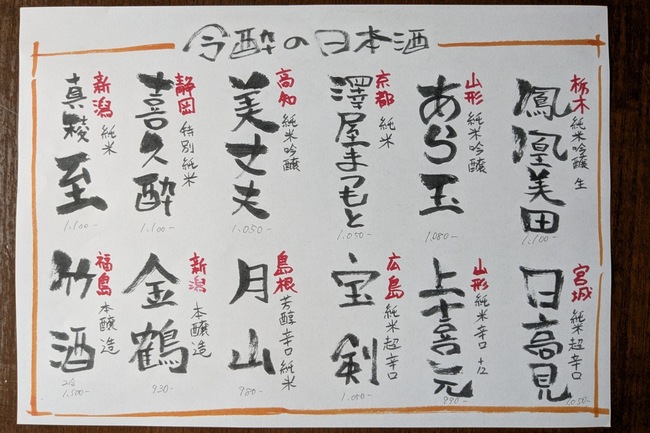 今酔の日本酒
栃木
純米吟醸 生
鳳凰美田
1.100-
山形
純米吟醸
あら玉
1.080-
京都
純米
澤屋まつもと
1.050-
高知
純米吟醸
美丈夫
1.050-
静岡
特別純米
喜久酔
1.100-
新潟
純米
真稜 至
1.100-
宮城
純米超辛口
日高見
1.050-
山形
純米辛口 +12
上喜元
990-
広島
純米超辛口
宝剣
1.050-
島根
芳醇辛口純米
月山
980-
新潟
本醸造
金鶴
930-
福島
本醸造
竹酒
2合
1.500-